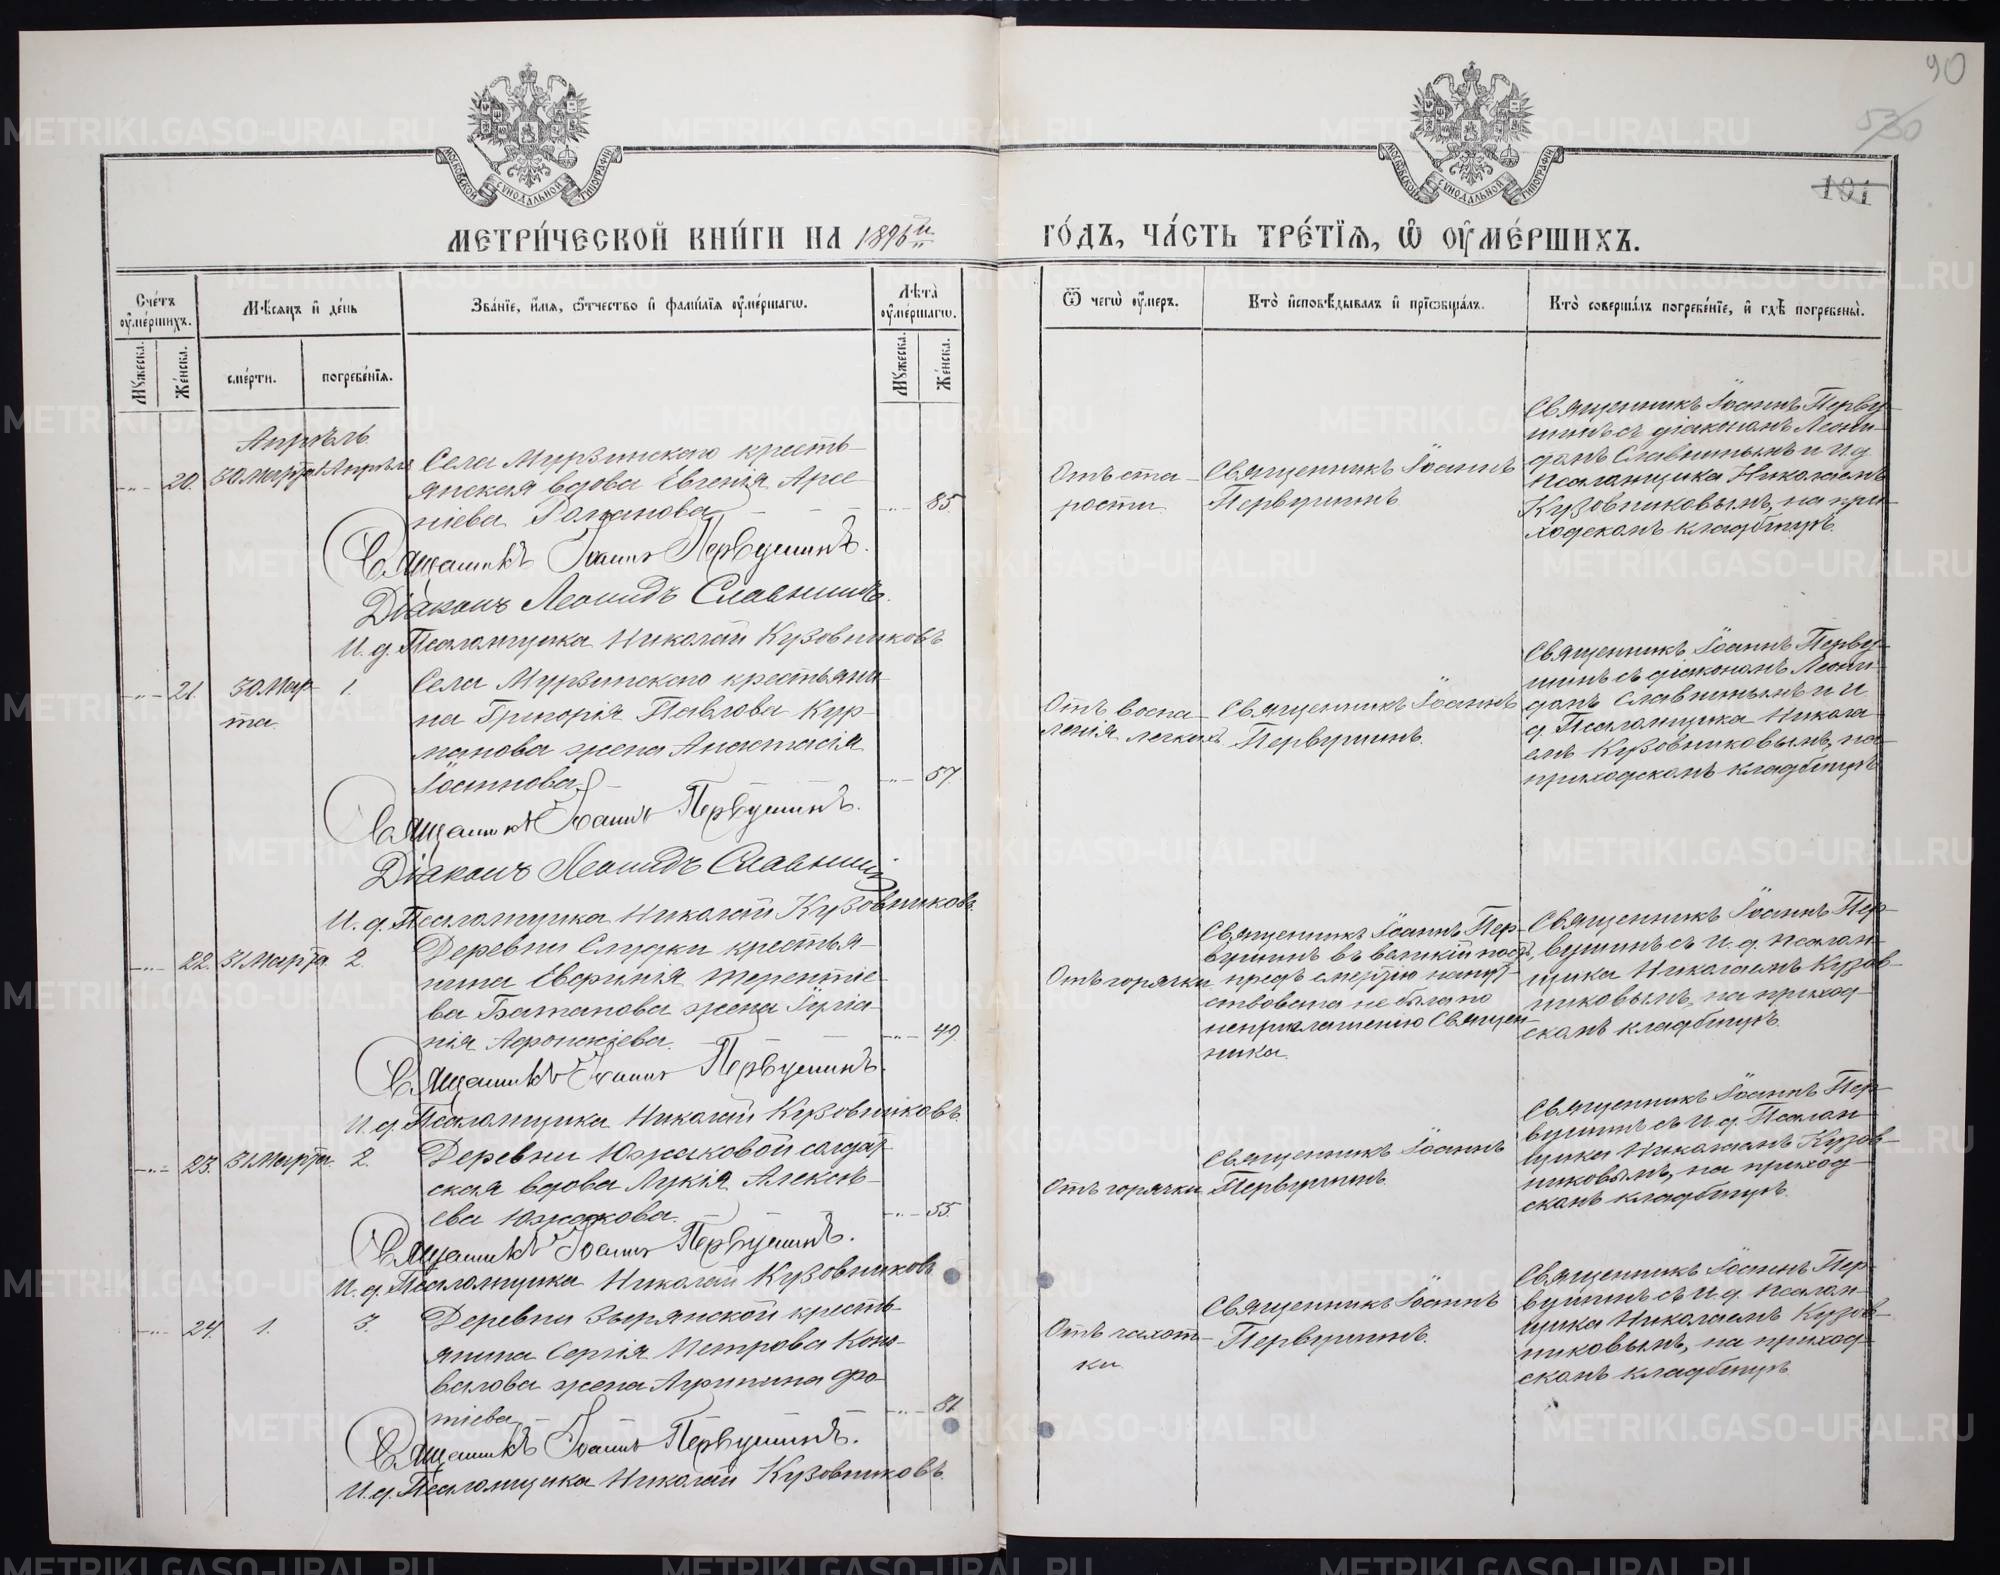 90
530
191
МОСКОВСКОЙ СѴНОДАЛЬНОЙ ТИПОГРАФІИ
МОСКОВСКОЙ СѴНОДАЛЬНОЙ ТИПОГРАФІИ
МЕТРИ́ЧЕСКОЙ КНИ́ГИ НА 1896й
ГО́ДЪ, ЧА́СТЬ ТРЕ́ТІѦ, Ѿ ОУМЕ́РШИХЪ.
Сче́тъ оуме́ршихъ.
Мѣ́сѧцъ и де́нь
Зва́нїе, и́мѧ, ѻ́тчество и фами́лїѧ оуме́ршагѡ.
Лѣ́та оуме́ршагѡ.
Ѿ чегѡ̀ оу́меръ.
Кто̀ и҆сповѣ́дывалъ и҆ прїѡбща́лъ.
Кто̀ соверша́лъ погребе́нїе, и҆ гдѣ̀ погребены̀.
Мꙋ́жеска.
Же́нска.
сме́рти.
погребе́нїѧ.
Мꙋ́жеска.
Же́нска.
Апрѣль.
20. 30 Марта 1 Апрѣля
Села Мурзинского кресть-
янская вдова Евгенія Арсе-
ніева Романова
85
Священникъ Іоаннъ Первушинъ.
Діаконъ Леонидъ Славнинъ.
И. д. Псаломщика Николай Кузовниковъ
Отъ ста-
рости
Священникъ Іоаннъ
Первушинъ
Священникъ Іоаннъ Перву-
шинъ съ діакономъ Леони-
домъ Славнинымъ и И. д.
псаломщика Николаемъ
Кузовниковымъ, на при-
ходскомъ кладбищѣ.
21. 30 Мар-
та 1.
Села Мурзинского крестьяни-
на Григорія Павлова Кур-
манова жена Анастасія
Іоаннова
57.
Священникъ Іоаннъ Первушинъ.
Діаконъ Леонидъ Славнинъ
И. д. Псаломщика Николай Кузовниковъ.
Отъ воспа-
ленія легкихъ
Священникъ Іоаннъ
Первушинъ.
Священникъ Іоаннъ Перву-
шинъ съ діакономъ Леони-
домъ Славнинымъ и И.
д. Псаломщика Никола-
емъ Кузовниковымъ, на
приходскомъ кладбищѣ
22. 31 Марта 2.
Деревни Слудки крестья-
нина Терентіе-
ва жена
49.
Священникъ Іоаннъ Первушинъ.
И. д. Псаломщика Николай Кузовниковъ.
Отъ горячки
Священникъ Іоаннъ Пер-
вушинъ въ великій постъ,
предъ смертію напут-
ствована не была по
неприглашенію Священ-
ника.
Священникъ Іоаннъ Пер-
вушинъ съ И. д. псалом-
щика Николаемъ Кузов-
никовымъ, на приход-
скомъ кладбищѣ.
23. 31 Марта. 2.
Деревни Южаковой солдат-
ская вдова Лукія Алексѣ-
ева Южакова.
55.
Священникъ Іоаннъ Первушинъ.
И. д. Псаломщика Николай Кузовниковъ
Отъ горячки
Священникъ Іоаннъ
Первушинъ.
Священникъ Іоаннъ Пер-
вушинъ съ И. д. Псалом-
щика Николаемъ Кузов-
никовымъ, на приход-
скомъ кладбищѣ.
24. 1. 3.
Деревни Зырянской кресть-
янина Сергія Петрова Коно-
валова жена Агрипина Фо-
тіева
81.
Священникъ Іоаннъ Первушинъ.
И. д. Псаломщика Николай Кузовниковъ.
Отъ чахот-
ки
Священникъ Іоаннъ
Первушинъ.
Священникъ Іоаннъ Пер-
вушинъ съ И. д. псалом-
щика Николаемъ Кузов-
никовымъ, на приход-
скомъ кладбищѣ
METRIKI.GASO-URAL.RU